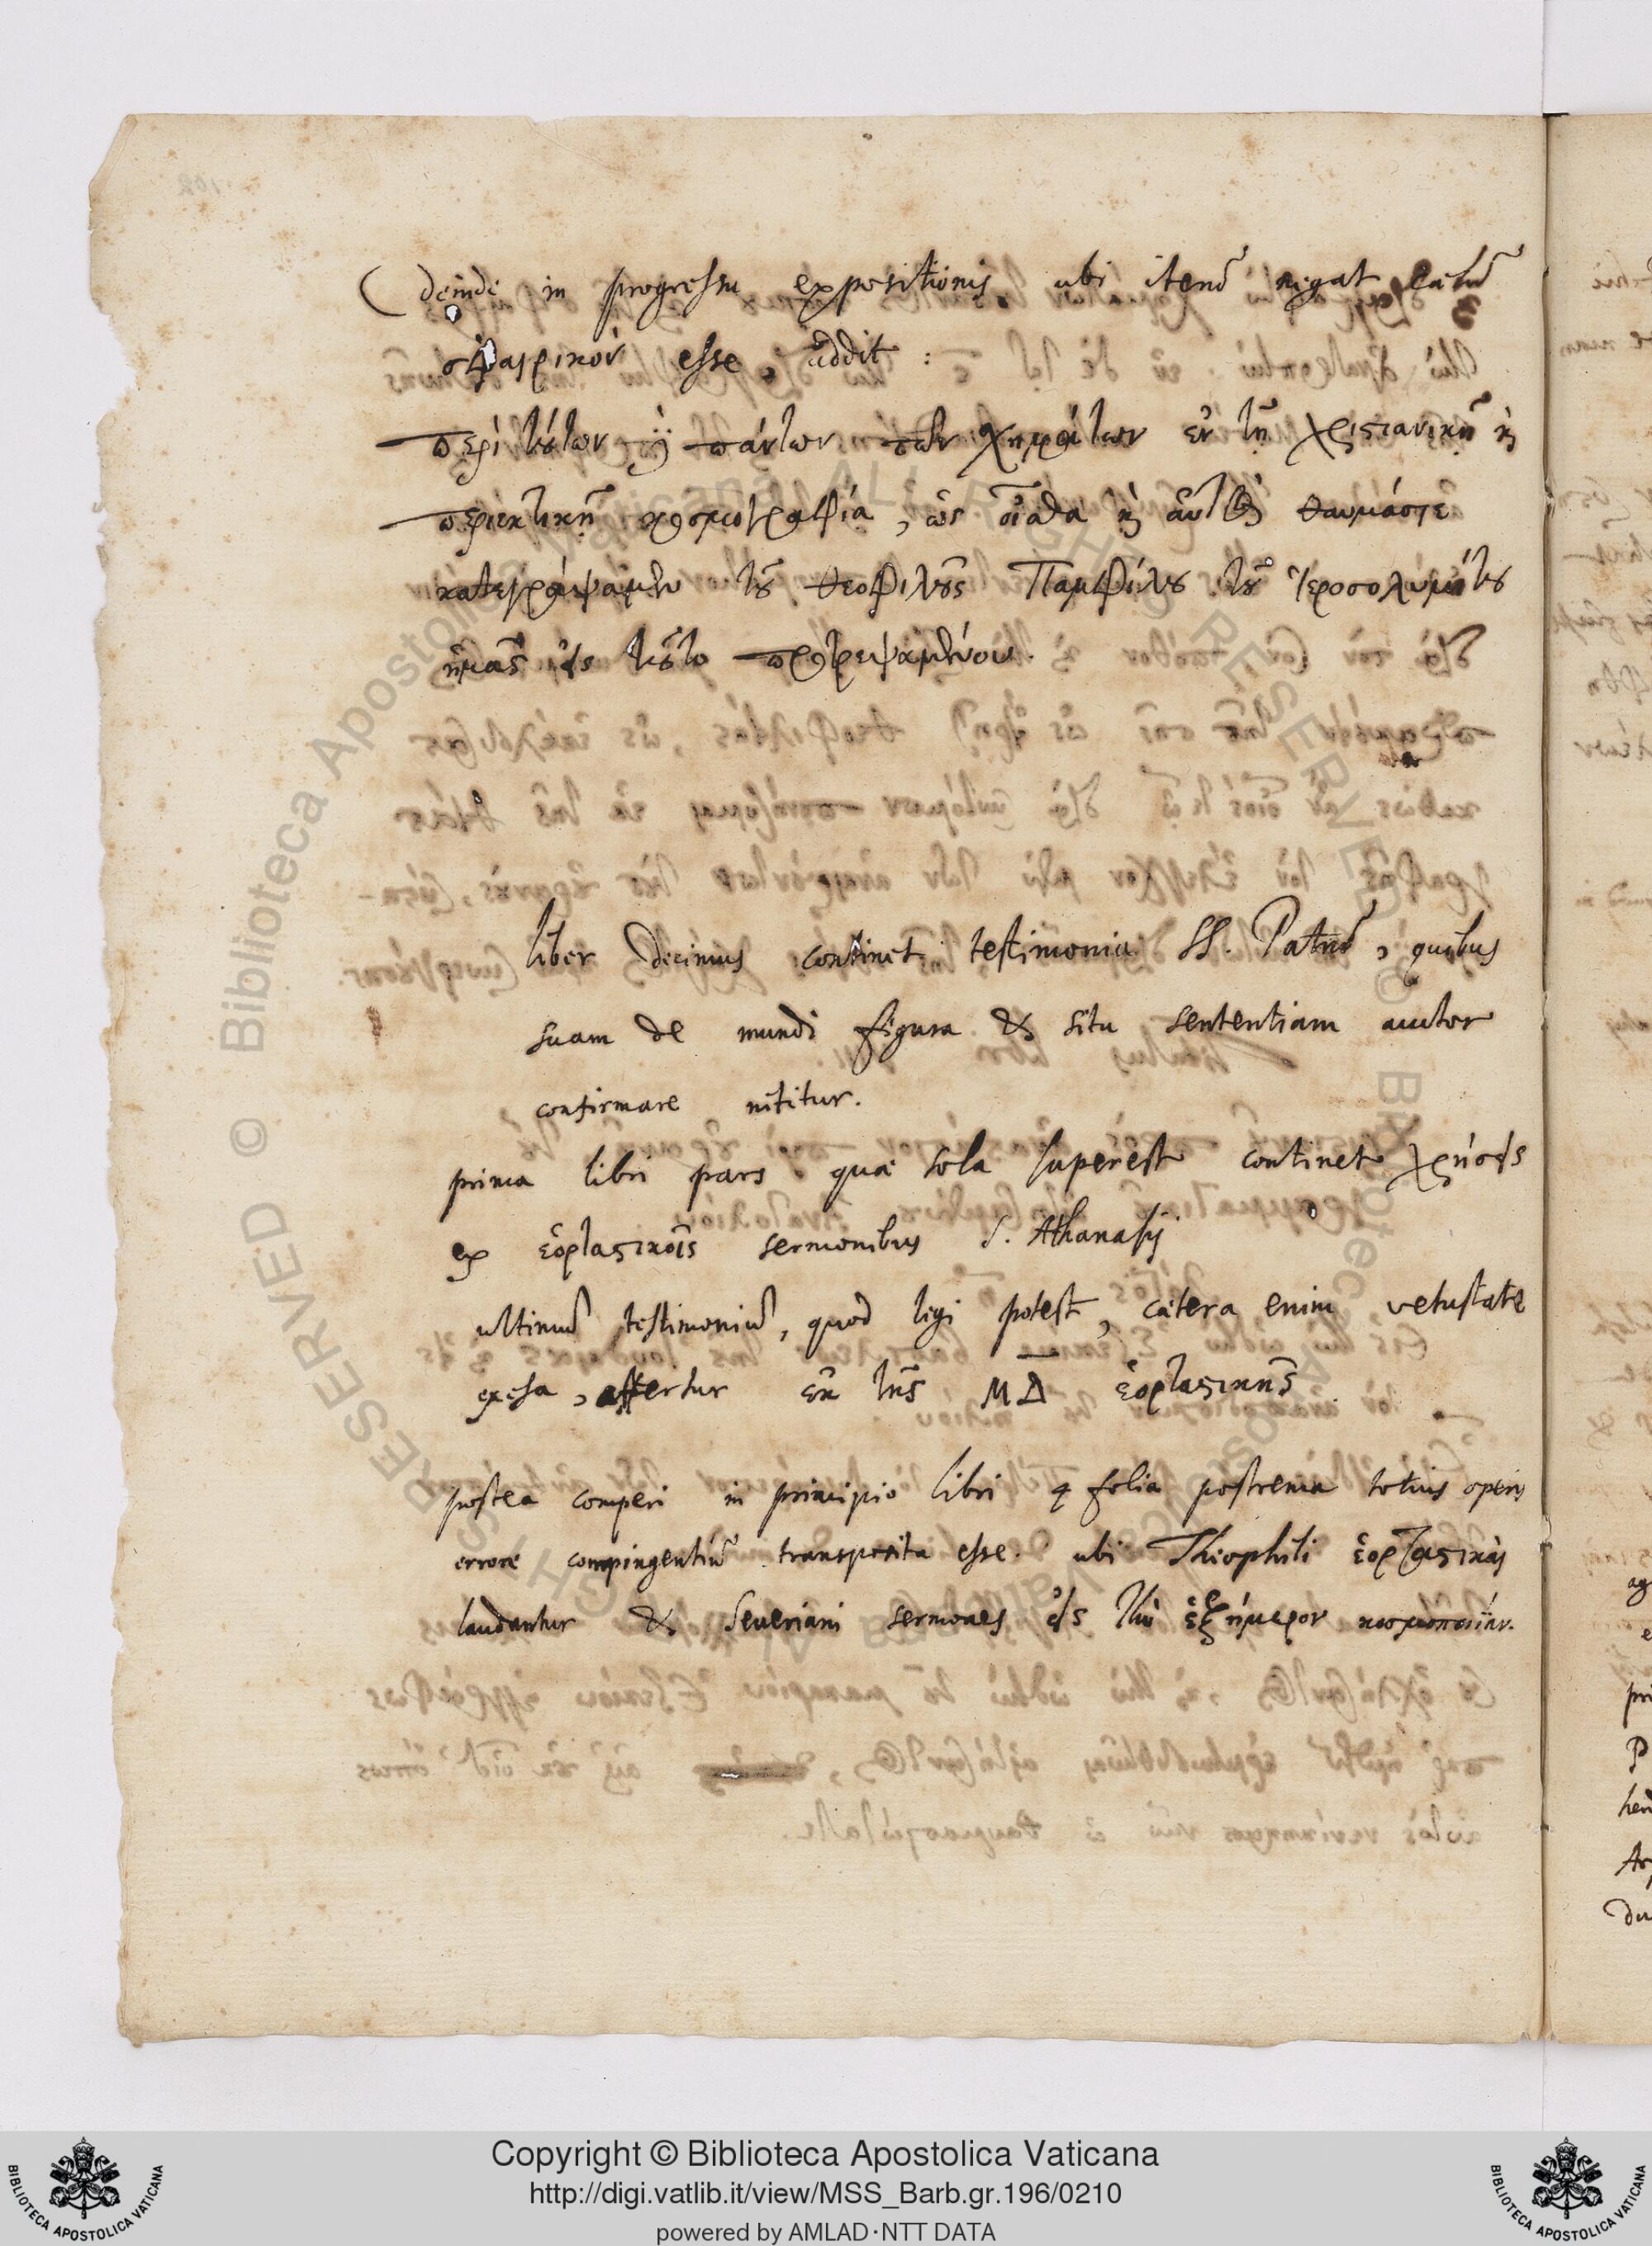 deinde in progressu expositionis ubi iterū negat cælū
σφαιρικὸν esse addit :
περὶ τούτων ἢ πάντων τῶν χημάτων ἐν τῇ χριστιανικῇ καὶ
περιεκτικῇ κοσμογραφία, ὡς οἶσθα καὶ αὐτὸς θαυμάσιε
κατεγράψαμεν τοῦ θεοφιλοῦς Παμφίλου τοῦ Ἱεροσολυμίτου
ἡμᾶς εἰς τοῦτο προτρεψαμένου.
liber decimus continet testimonia SS. Patrū, quibus
suam de mundi figura & situ sententiam auctor
confirmare nititur.
prima libri pars quæ sola superest continet χρήσεις
ex ἑορταστικοῖς sermonibus S. Athanasij
ultimū testimoniū, quod legi potest, cætera enim vetustate
exesa, affertur ἐκ τῆς ΜΔ ἑορταστικῆς
postea comperi in principio libri 4 folia postrema totius operis
errore compingentiū transposita esse. ubi Theophili ἑορταστικαὶ
laudantur & Seueriani sermones εἰς τὴν ἑξήμερον κοσμοποιίαν.
Copyright © Biblioteca Apostolica Vaticana
http://digi.vatlib.it/view/MSS_Barb.gr.196/0210
powered by AMLAD·NTT DATA